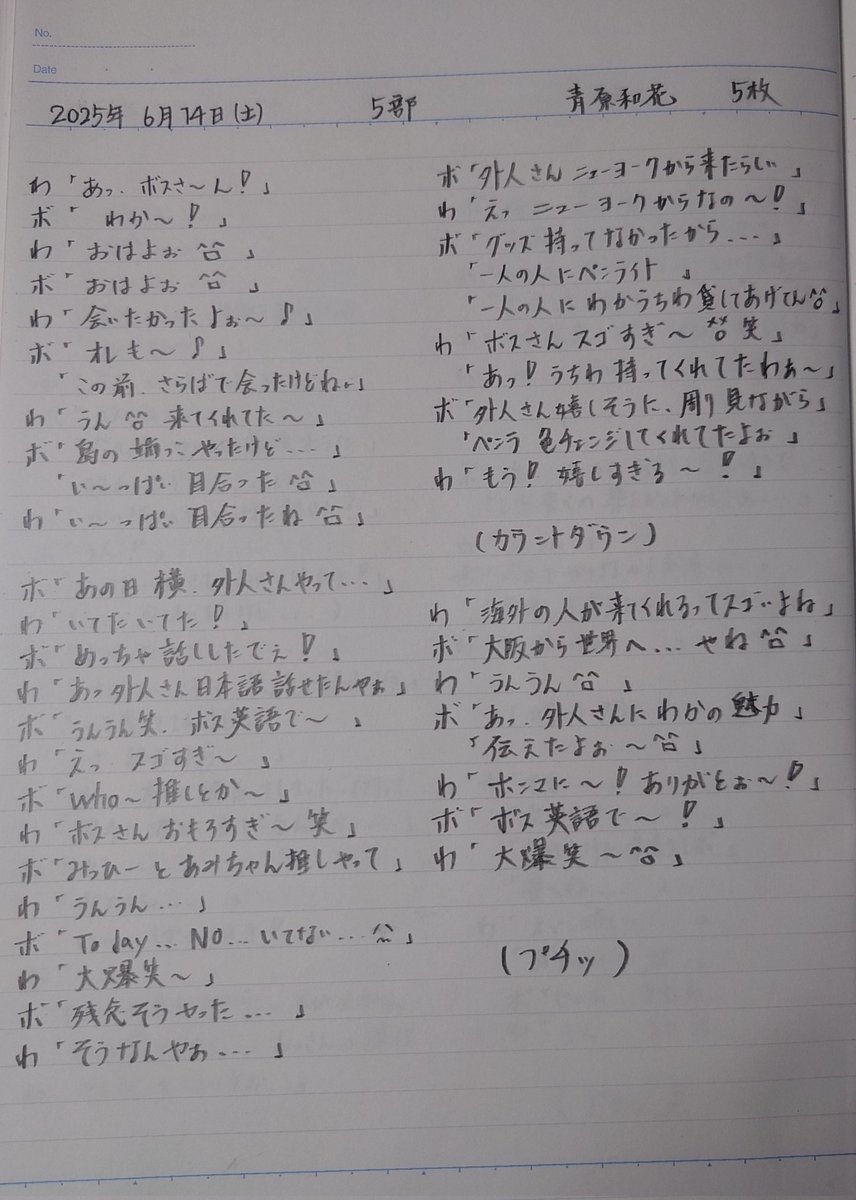 No.
Date
2025年 6月14日(土) 5部 青原和花 5枚
わ「あっ、ボスさ〜ん!」
ボ「わか〜!」
わ「おはよぉ ^^」
ボ「おはよぉ ^^」
わ「会いたかったよぉ〜♪」
ボ「オレも〜♪」
「この前、さらばで会ったけどねぃ」
わ「うん ^^ 来てくれてた〜」
ボ「島の端っこやったけど...」
「い〜っぱい 目合った ^^」
わ「い〜っぱい 目合ったね ^^」
ボ「あの日 横、外人さんやって...」
わ「いてたいてた!」
ボ「めっちゃ話ししたでぇ!」
わ「あっ 外人さん日本語 話せたんやぁ」
ボ「うんうん笑、ボス英語で〜」
わ「えっ スゴすぎ〜」
ボ「Who〜推しとか〜」
わ「ボスさん おもろすぎ〜 笑」
ボ「みっひーと あみちゃん推しやって」
わ「うんうん...」
ボ「To day... NO... いてない... ^^」
わ「大爆笑〜」
ボ「残念そうやった...」
わ「そうなんやぁ...」
ボ「外人さん ニューヨークから来たらしい」
わ「えっ ニューヨークからなの〜!」
ボ「グッズ 持ってなかったから...」
「一人の人にペンライト」
「一人の人に わかうちわ 貸してあげてん^^」
わ「ボスさん スゴすぎ〜 ^^ 笑」
「あっ! うちわ 持ってくれてたわぁ〜」
ボ「外人さん嬉しそうに、周り見ながら」
「ペンラ 色チェンジしてくれてたよぉ」
わ「もう! 嬉しすぎる〜!」
(カウントダウン)
わ「海外の人が来てくれるってスゴいよね」
ボ「大阪から世界へ... やね ^^」
わ「うんうん ^^」
ボ「あっ、外人さんに わかの 魅力」
「伝えたよぉ〜^^」
わ「ホンマに〜! ありがとぉ〜!」
ボ「ボス 英語で〜!」
わ「大爆笑〜^^」
(プチッ)